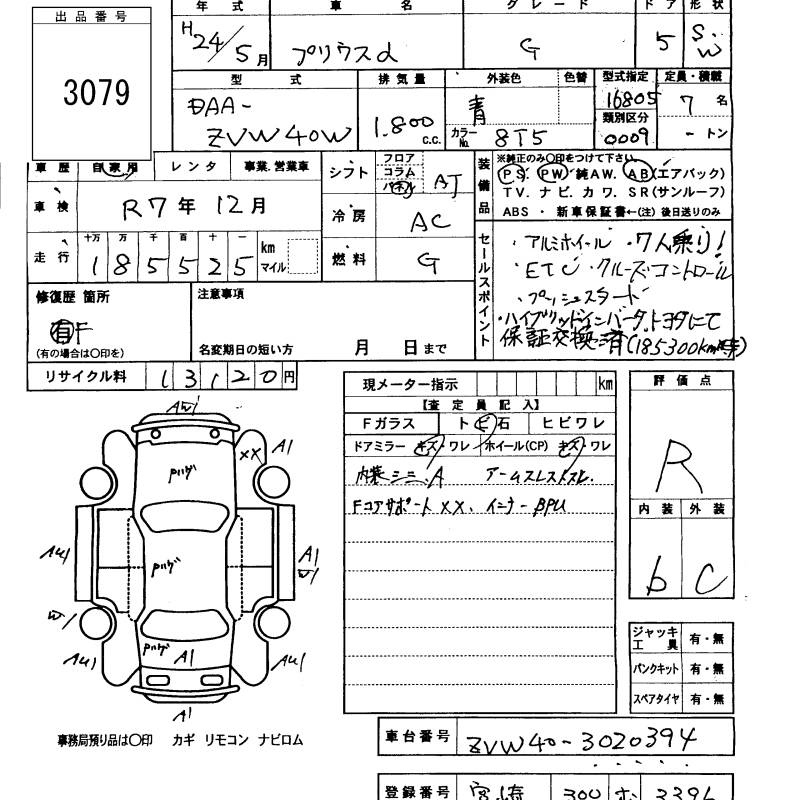 年式 車名 グレード ドア 形状
出品番号
3079
H24/5月 プリウスα G 5 S.W
型式 排気量 外装色 色替 型式指定 定員・積載
DAA-
ZVW40W
1.800 c.c.
青
カラーNo. 8T5
16805
類別区分
0009
7名
-トン
車歴 自家用 レンタ 事業.営業車
シフト フロア コラム パネル AT
装備品
※純正のみ〇印をつけて下さい。
PS. PW 純AW. AB(エアバック)
TV. ナビ. カワ. SR(サンルーフ)
ABS ・ 新車保証書←(注) 後日送りのみ
車検 R7年12月
冷房 AC
走行 十万 万 千 百 十 一
185525 km マイル
燃料 G
セールスポイント
・アルミホイール ・7人乗り!
・ETC ・クルーズコントロール
・プッシュスタート
・ハイブリッドインバータ、トヨタにて
保証交換済(185300km時)
修復歴 箇所
有F
(有の場合は〇印を)
注意事項
名変期日の短い方 月 日まで
リサイクル料 13,120円
現メーター指示 km
【査定員記入】
Fガラス トビ石 ヒビワレ
ドアミラー キズ・ワレ ホイール(CP) キズ・ワレ
内装シミ.A アームレストスレ.
Fコアサポート XX. インナーBPU
評価点
R
内装 外装
b C
AW1
A1
XX
Pハゲ
AU1
Pハゲ
A1
W1
W1
AU1
Pハゲ
A1
AU1
A1
ジャッキ工具 有・無
パンクキット 有・無
スペアタイヤ 有・無
事務局預り品は〇印 カギ リモコン ナビロム
車台番号 ZVW40-3020394
登録番号 宮崎 300 ホ